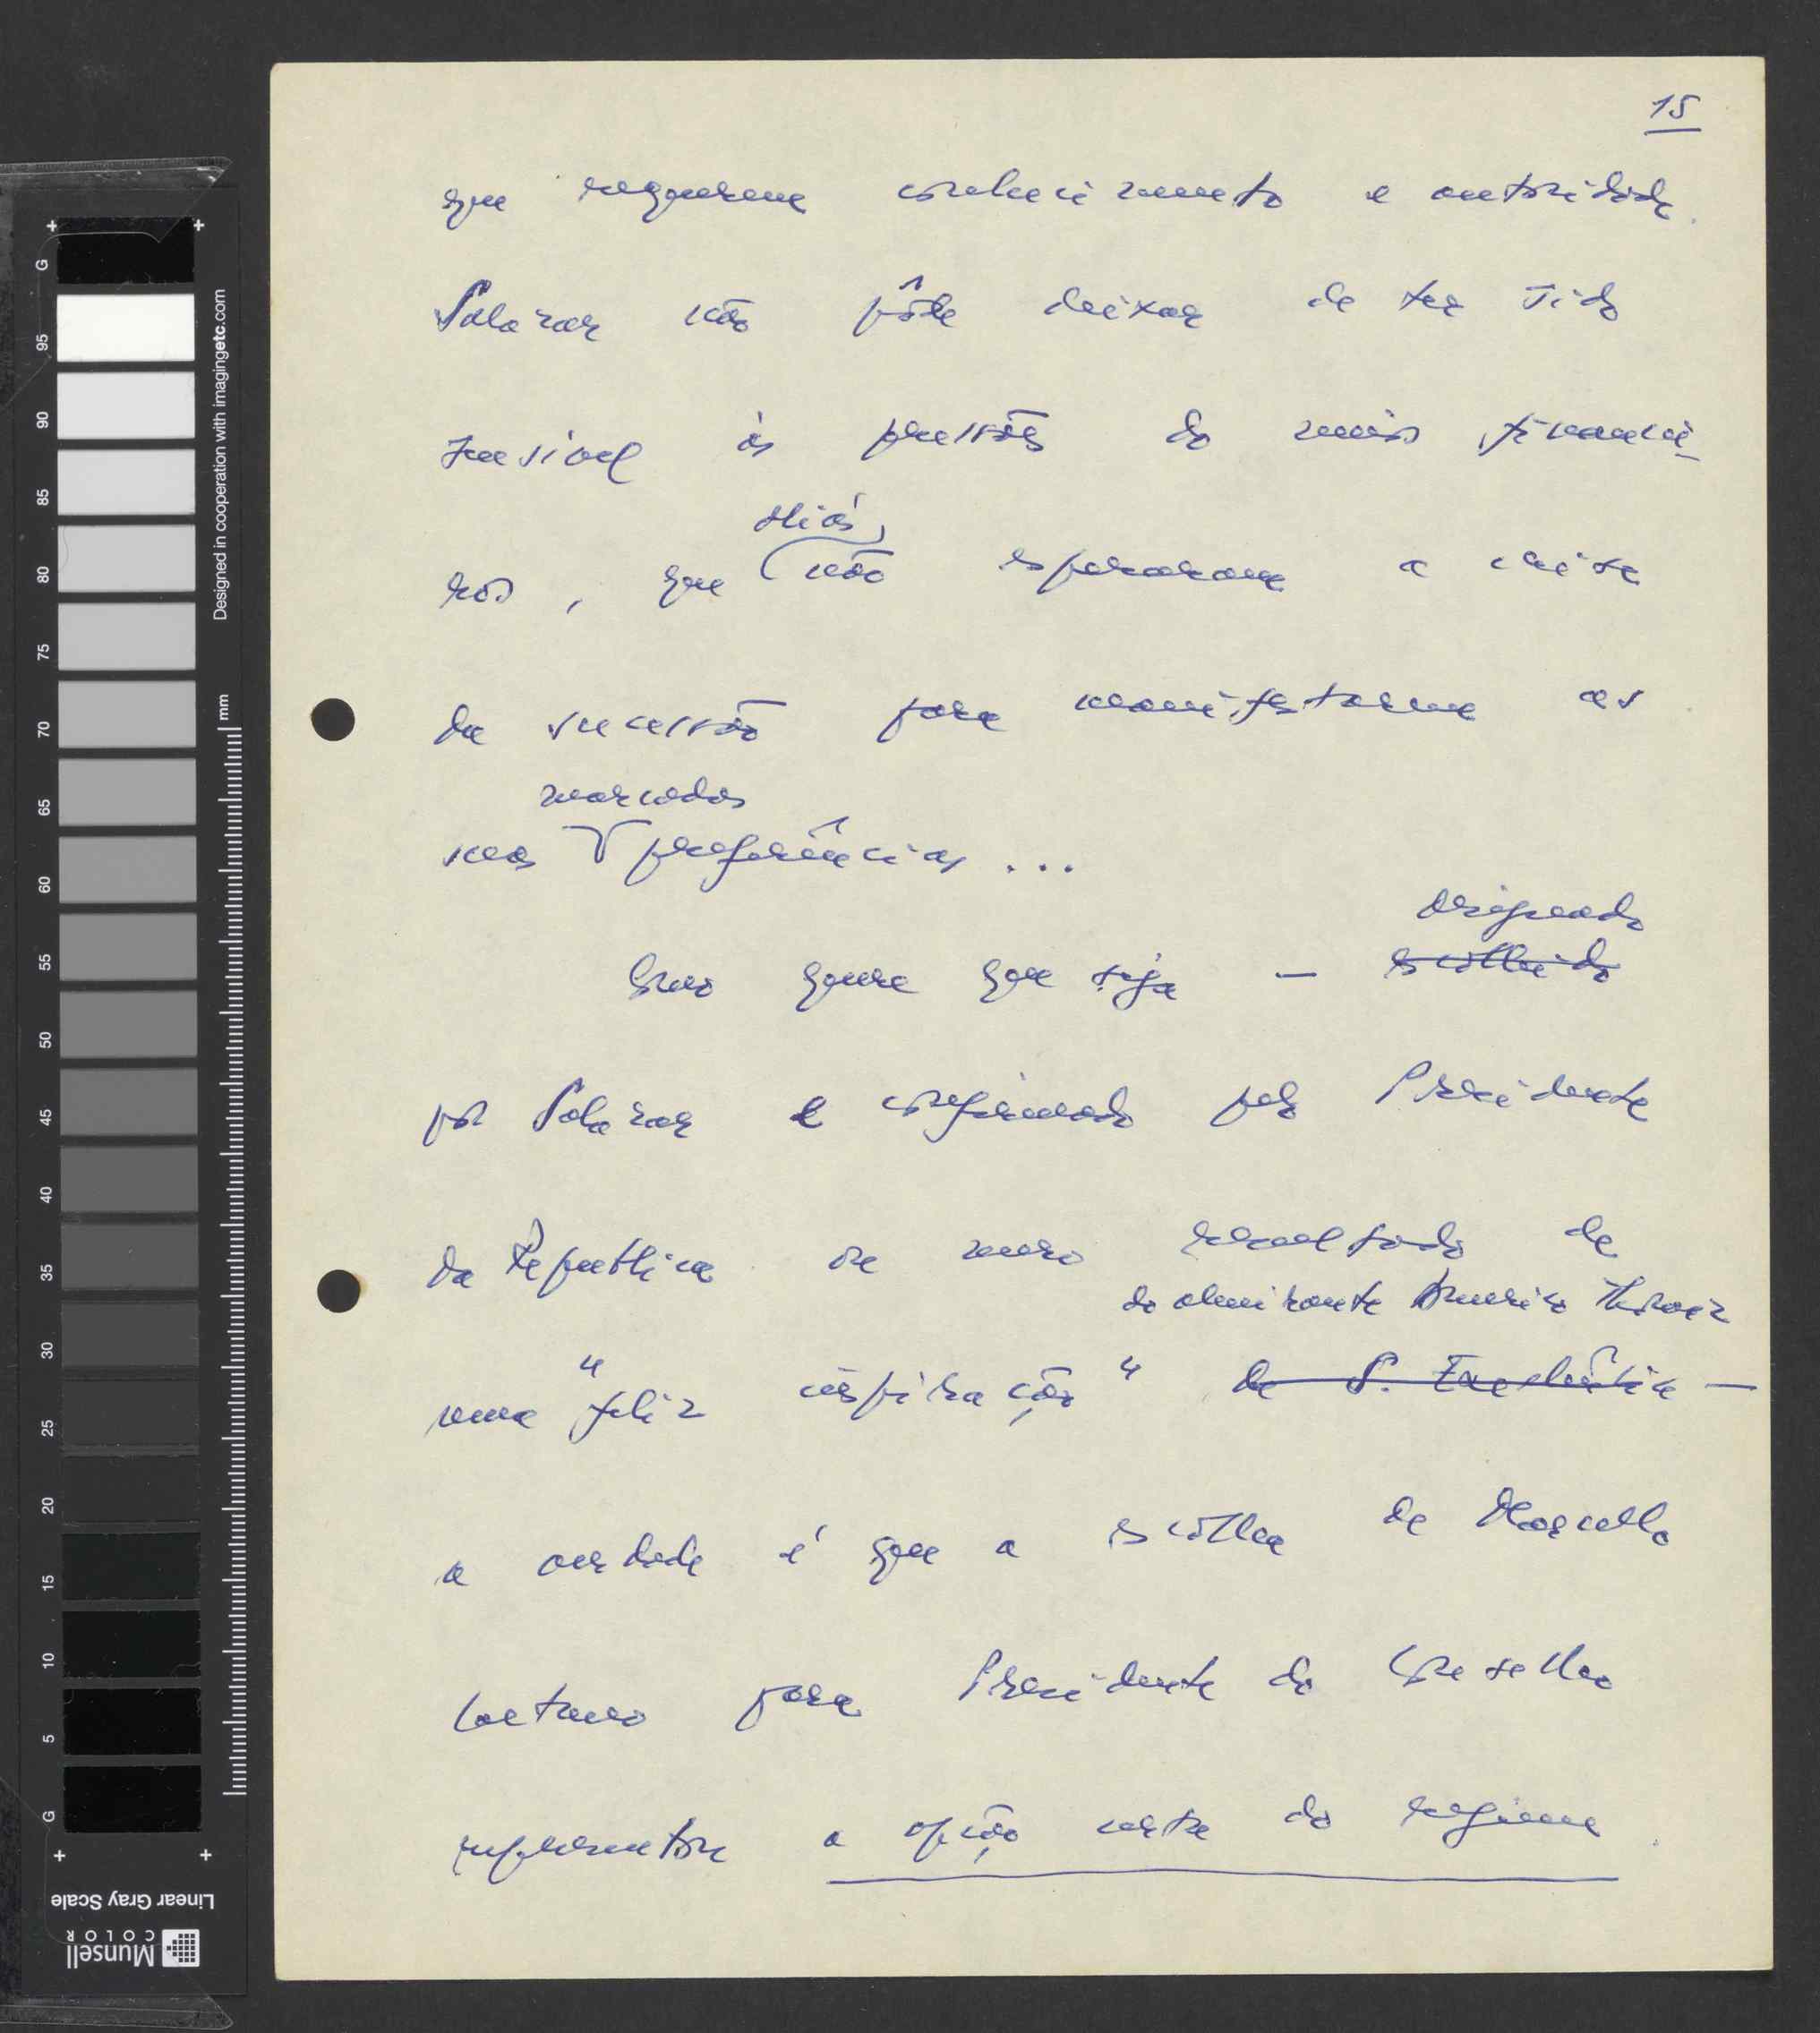 15
que requerem conhecimento e autoridade.
Salazar não pôde deixar de ter sido
sensível às pressões do meio financei-
ro, que
aliás,
não esperaram a crise
da sucessão para manifestarem as
marcadas
suas preferências...
Como quem que seja —
designado
escolhido
por Salazar e confirmado pelo Presidente
da República ou mero resultado de
do almirante Américo Thomaz
uma "feliz inspiração" de S. Excelência —
a verdade é que a escolha de Marcello
Caetano para Presidente do Conselho
representou a opção certa do regime.
G 95 90 85 80 75 70 65 60 55 50 45 40 35 30 25 20 15 10 5 G
Designed in cooperation with imagingetc.com
mm
Linear Gray Scale
Munsell
COLOR